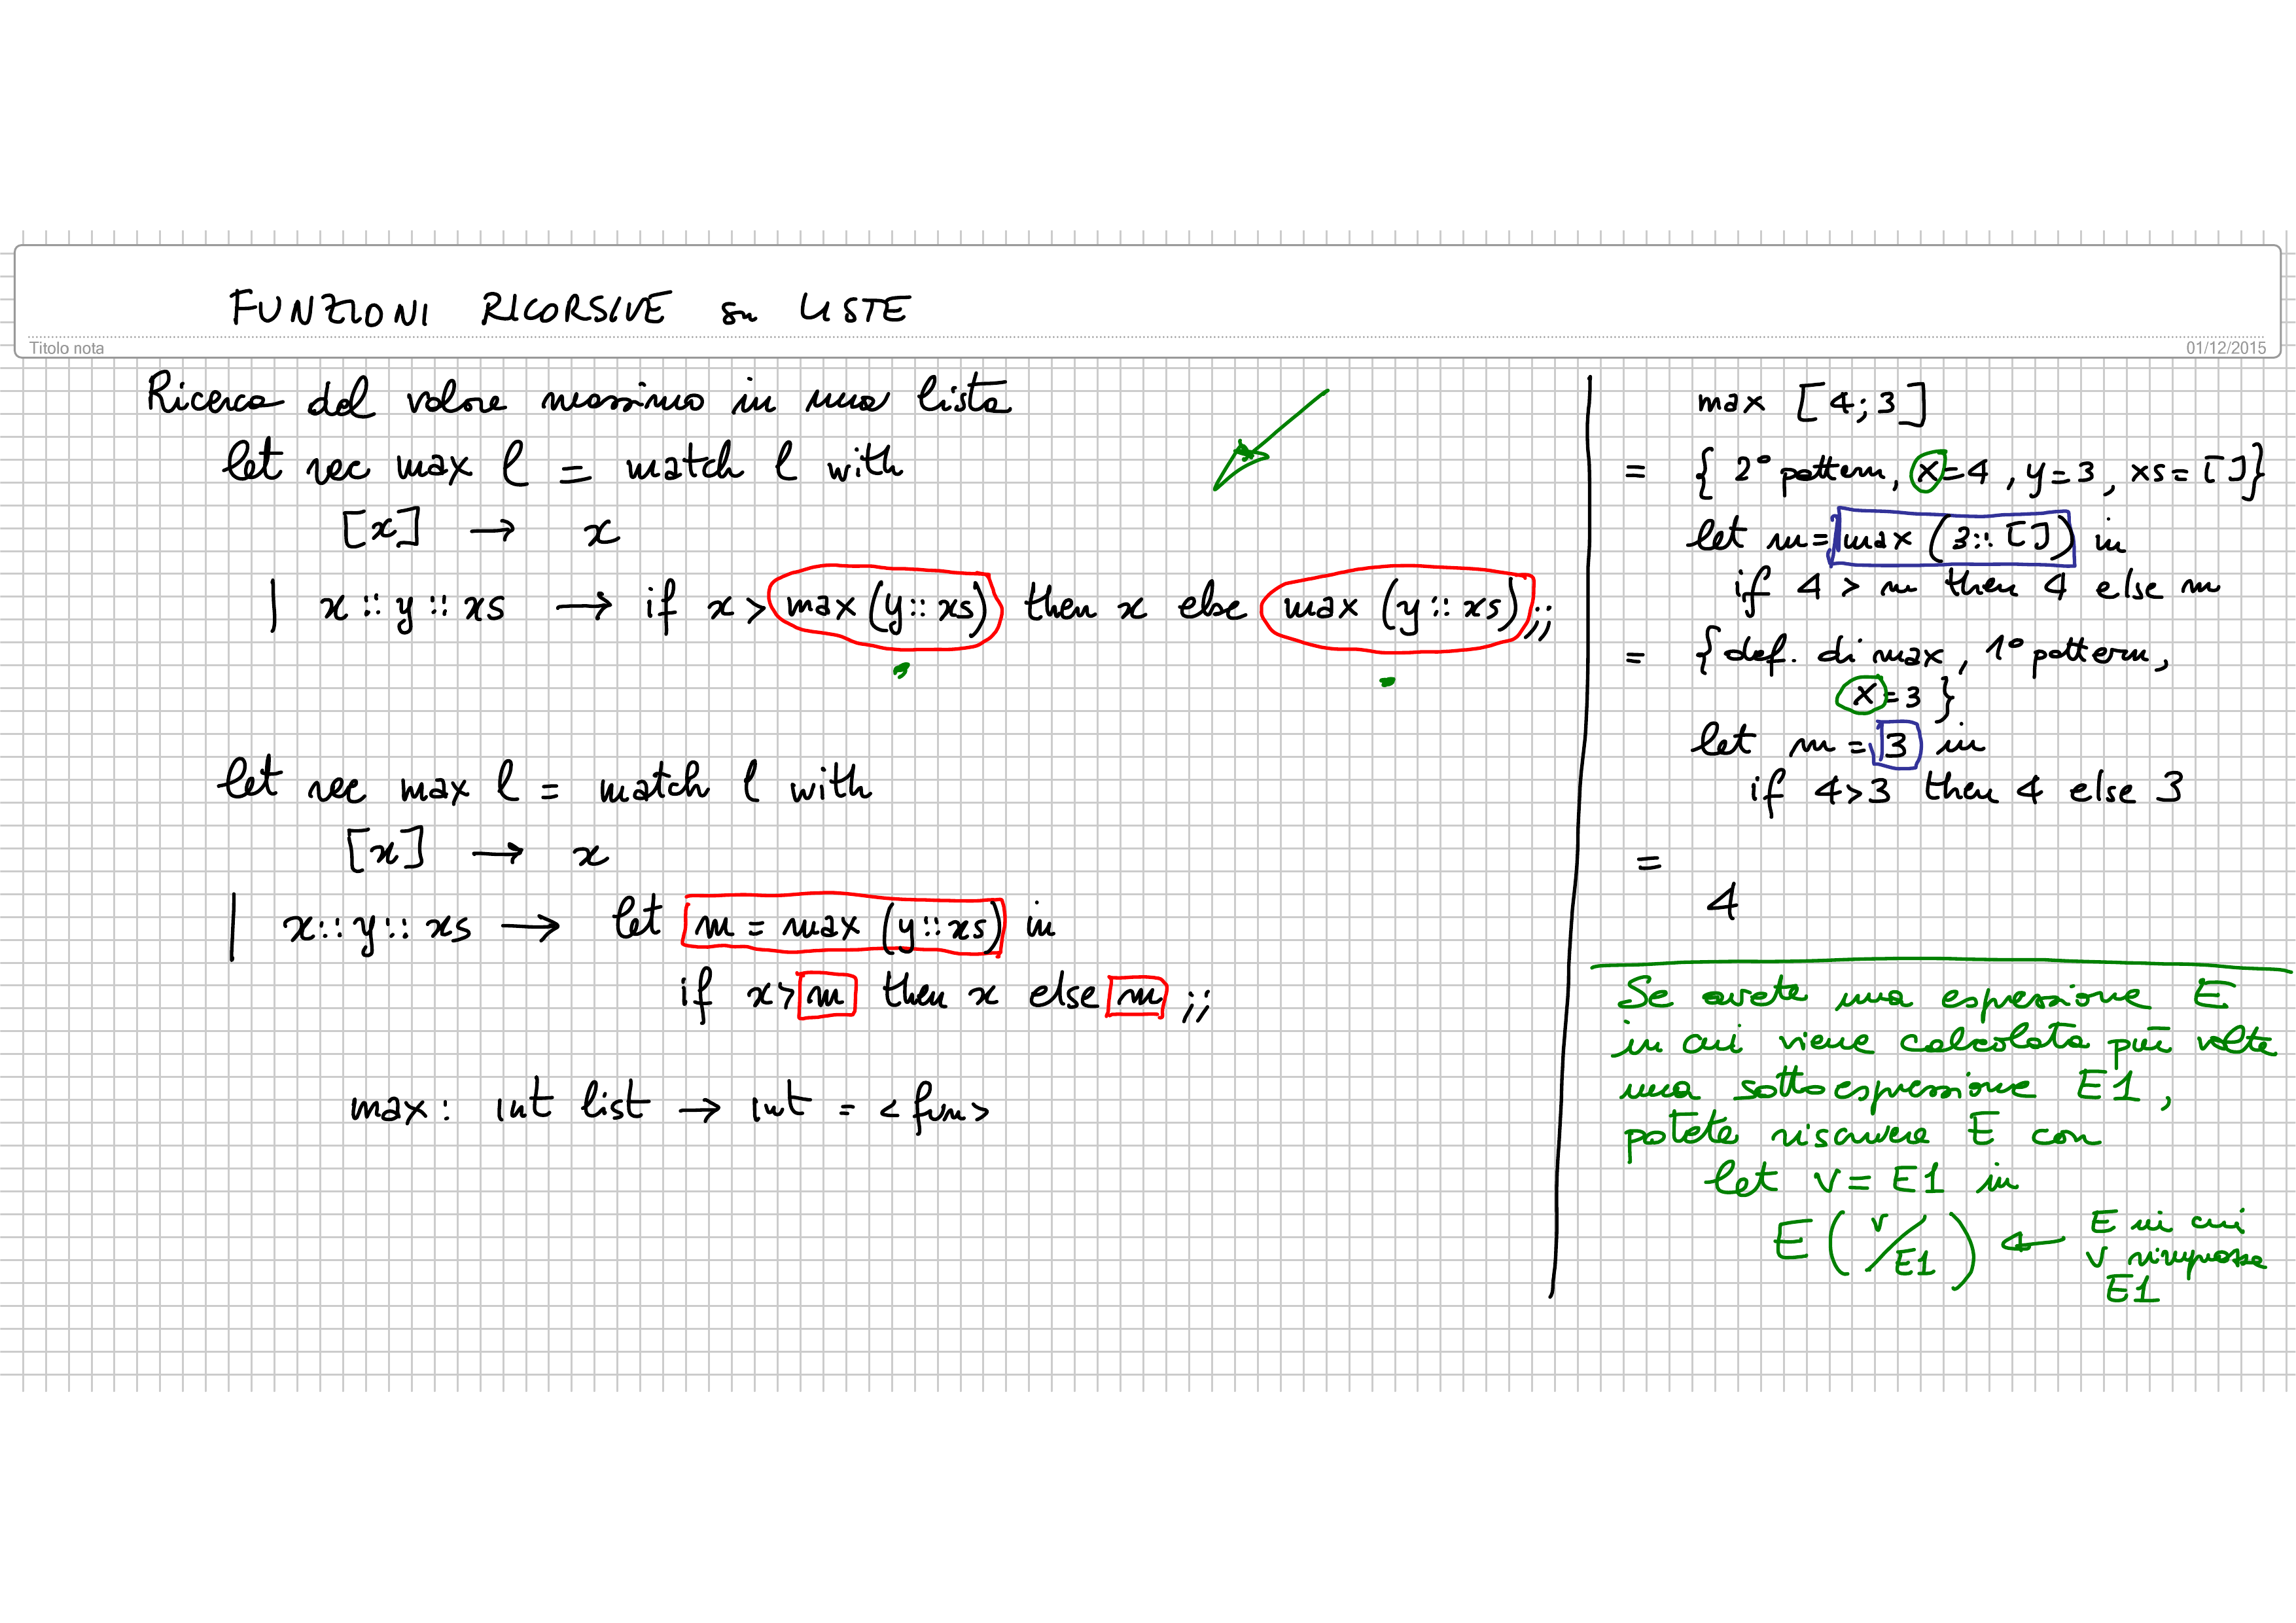 FUNZIONI RICORSIVE su LISTE
Titolo nota
01/12/2015
Ricerca del valore massimo in una lista
let rec max l = match l with
[x] → x
| x :: y :: xs → if x > max (y :: xs) then x else max (y :: xs) ;;
let rec max l = match l with
[x] → x
| x :: y :: xs → let m = max (y :: xs) in
if x > m then x else m ;;
max : int list → int = <fun>
max [4; 3]
= { 2° pattern, x=4, y=3, xs=[] }
let m = max (3 :: []) in
if 4 > m then 4 else m
= { def. di max, 1° pattern,
x=3 }
let m = 3 in
if 4>3 then 4 else 3
=
4
Se avete una espressione E
in cui viene calcolata più volte
una sottoespressione E1,
potete riscrivere E con
let v = E1 in
E (v/E1) ← E in cui
v rimpiazza
E1